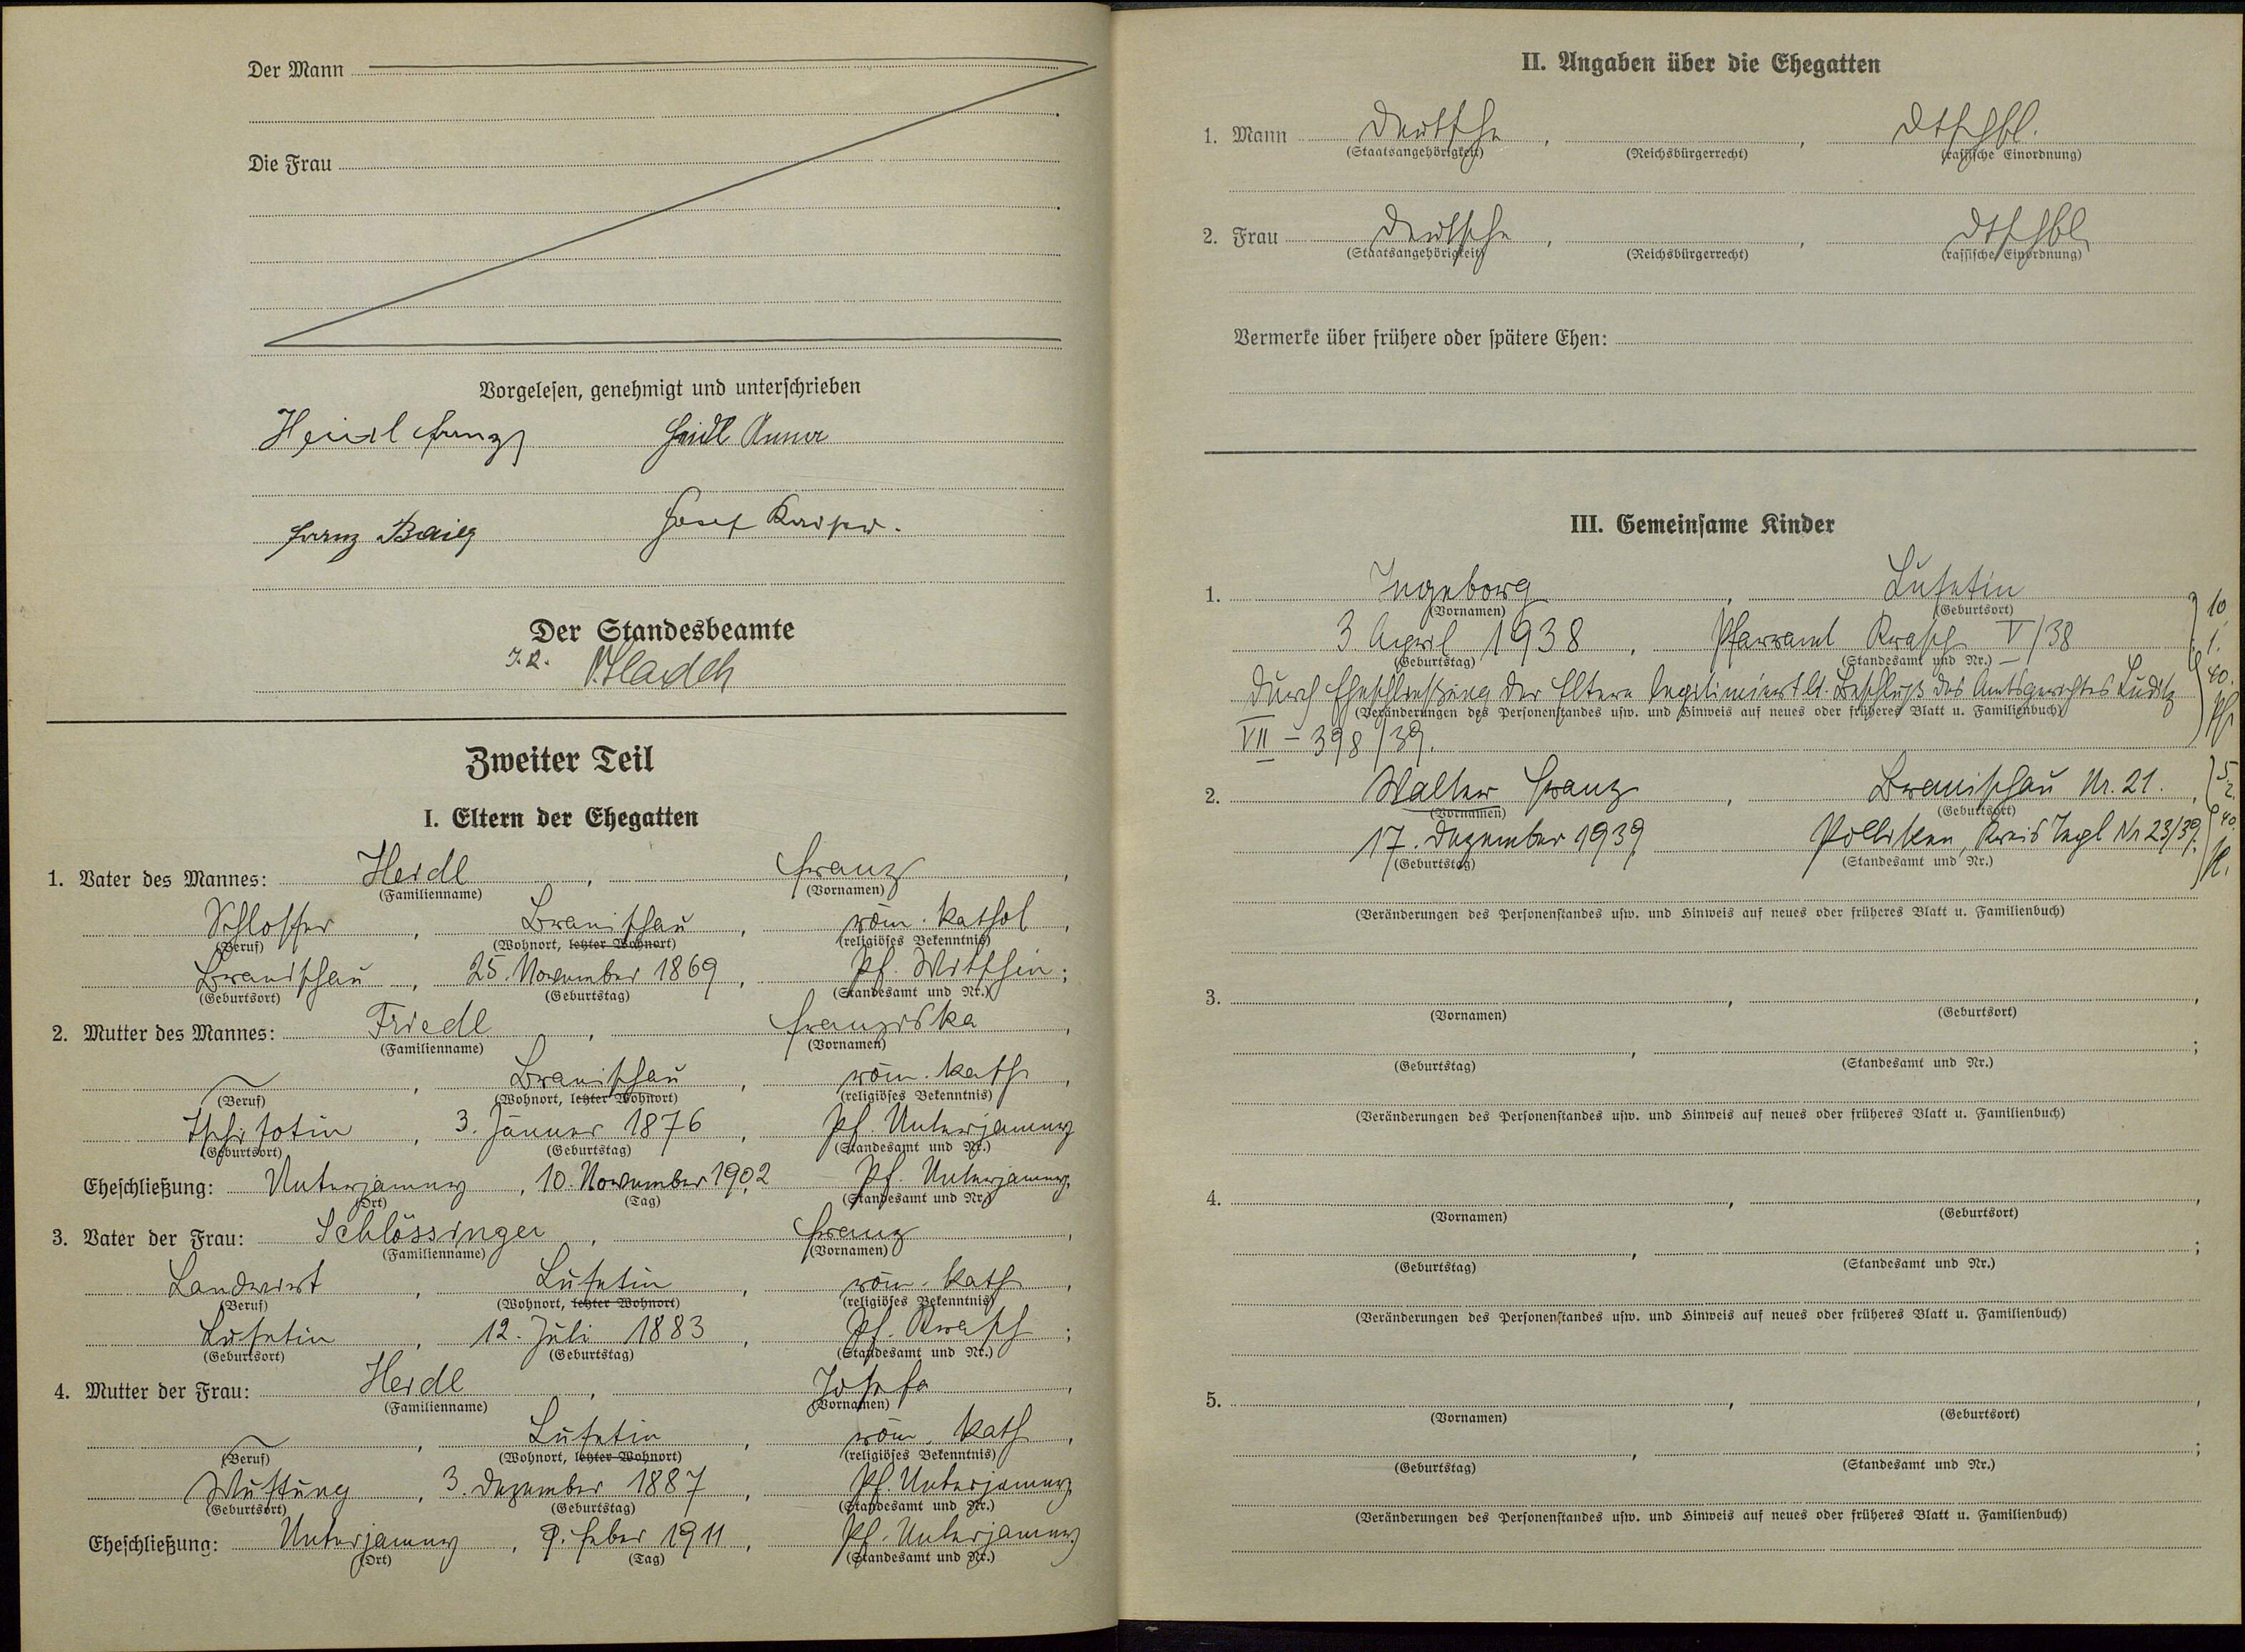 Der Mann
Die Frau
Vorgelesen, genehmigt und unterschrieben
Heidl Franz Heidl Anna
Franz Josef
Der Standesbeamte
Zweiter Teil
I. Eltern der Ehegatten
1. Vater des Mannes: Heidl, Franz,
(Familienname) (Vornamen)
Schlosser, Branischau, röm. kathol,
(Beruf) (Wohnort, letzter Wohnort) (religiöses Bekenntnis)
Branischau, 25. November 1869, Pf. Witschin;
(Geburtsort) (Geburtstag) (Standesamt und Nr.)
2. Mutter des Mannes: Friedl, Franziska,
(Familienname) (Vornamen)
, Branischau, röm. kath,
(Beruf) (Wohnort, letzter Wohnort) (religiöses Bekenntnis)
, 3. Jänner 1876, Pf. Unterjamny
(Geburtsort) (Geburtstag) (Standesamt und Nr.)
Eheschließung: Unterjamny, 10. November 1902, Pf. Unterjamny,
(Ort) (Tag) (Standesamt und Nr.)
3. Vater der Frau: Schlössinger, Franz,
(Familienname) (Vornamen)
Landwirt, Lusetin, röm. kath,
(Beruf) (Wohnort, letzter Wohnort) (religiöses Bekenntnis)
Lusetin, 12. Juli 1883, Pf. Krasch;
(Geburtsort) (Geburtstag) (Standesamt und Nr.)
4. Mutter der Frau: Heidl, Josefa,
(Familienname) (Vornamen)
, Lusetin, röm. kath,
(Beruf) (Wohnort, letzter Wohnort) (religiöses Bekenntnis)
Wustung, 3. Dezember 1887, Pf. Unterjamny
(Geburtsort) (Geburtstag) (Standesamt und Nr.)
Eheschließung: Unterjamny, 9. Feber 1911, Pf. Unterjamny
(Ort) (Tag) (Standesamt und Nr.)
II. Angaben über die Ehegatten
1. Mann Deutsche, , dtschbl.
(Staatsangehörigkeit) (Reichsbürgerrecht) (rassische Einordnung)
2. Frau Deutsche, , dtschbl.
(Staatsangehörigkeit) (Reichsbürgerrecht) (rassische Einordnung)
Vermerke über frühere oder spätere Ehen:
III. Gemeinsame Kinder
1. Ingeborg, Lusetin
(Vornamen) (Geburtsort)
3. April 1938, Pfarramt Krasch V/38
(Geburtstag) (Standesamt und Nr.)
durch Eheschließung der Eltern legitimiert lt. Beschluß des Amtsgerichtes Luditz
(Veränderungen des Personenstandes usw. und Hinweis auf neues oder früheres Blatt u. Familienbuch)
VII – 398/39.
10. 1. 40.
2. Walter Franz, Branischau Nr. 21.,
(Vornamen) (Geburtsort)
17. Dezember 1939 Pollinken, Kreis Tepl Nr 23/39;
(Geburtstag) (Standesamt und Nr.)
5. 2. 40.
(Veränderungen des Personenstandes usw. und Hinweis auf neues oder früheres Blatt u. Familienbuch)
3. , ,
(Vornamen) (Geburtsort)
, ;
(Geburtstag) (Standesamt und Nr.)
(Veränderungen des Personenstandes usw. und Hinweis auf neues oder früheres Blatt u. Familienbuch)
4. , ,
(Vornamen) (Geburtsort)
, ;
(Geburtstag) (Standesamt und Nr.)
(Veränderungen des Personenstandes usw. und Hinweis auf neues oder früheres Blatt u. Familienbuch)
5. , ,
(Vornamen) (Geburtsort)
, ;
(Geburtstag) (Standesamt und Nr.)
(Veränderungen des Personenstandes usw. und Hinweis auf neues oder früheres Blatt u. Familienbuch)